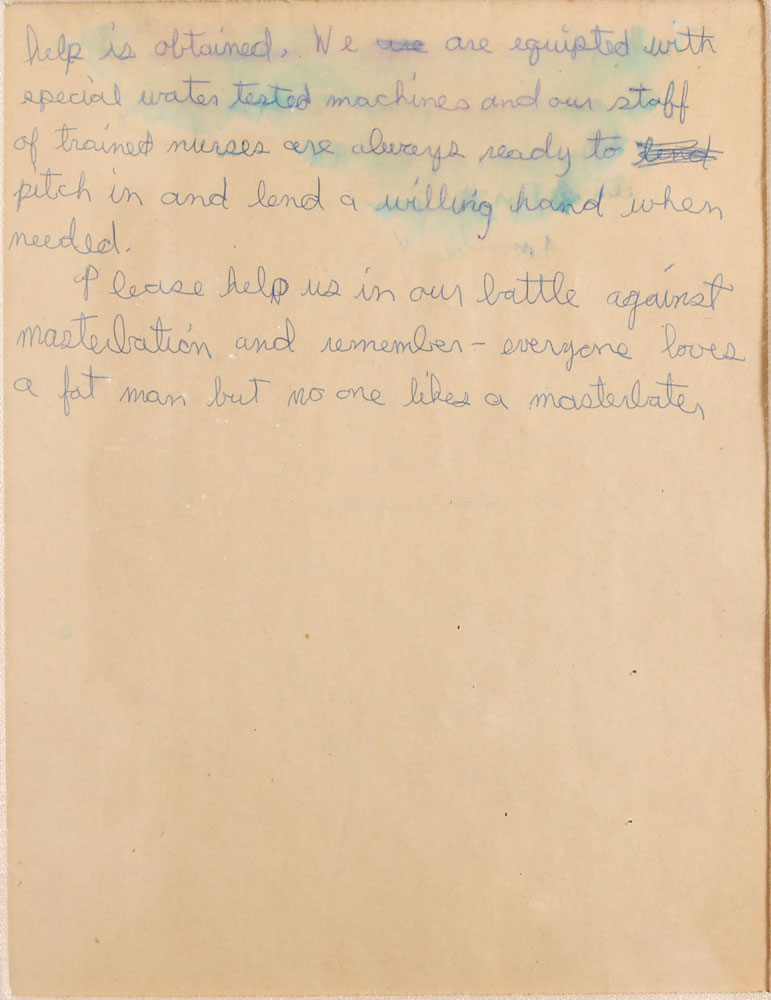 help is obtained. We are are equipted with
special water tested machines and our staff
of trained nurses are always ready to lend
pitch in and lend a willing hand when
needed.
Please help us in our battle against
masterbation and remember - everyone loves
a fat man but no one likes a masterbater